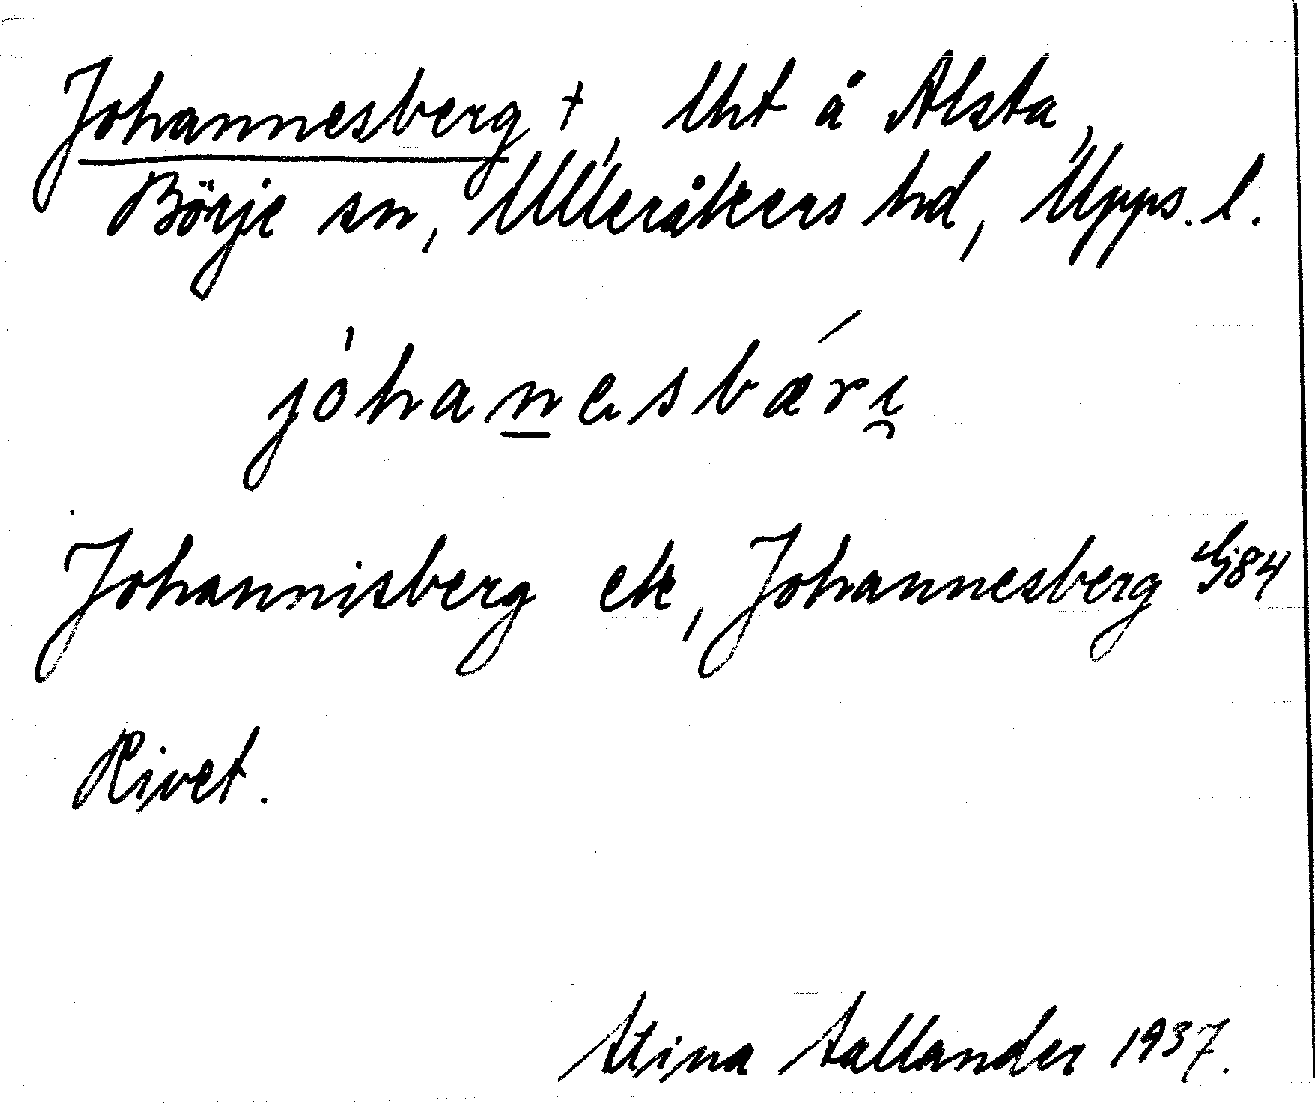 Johannesberg †, lht å Alsta,
Börje sn, Ulleråkers hd, Upps. l.
jóhanesbǽri̯
Johannisberg ek, Johannesberg G84
Rivet.
Stina Sallander 1937.